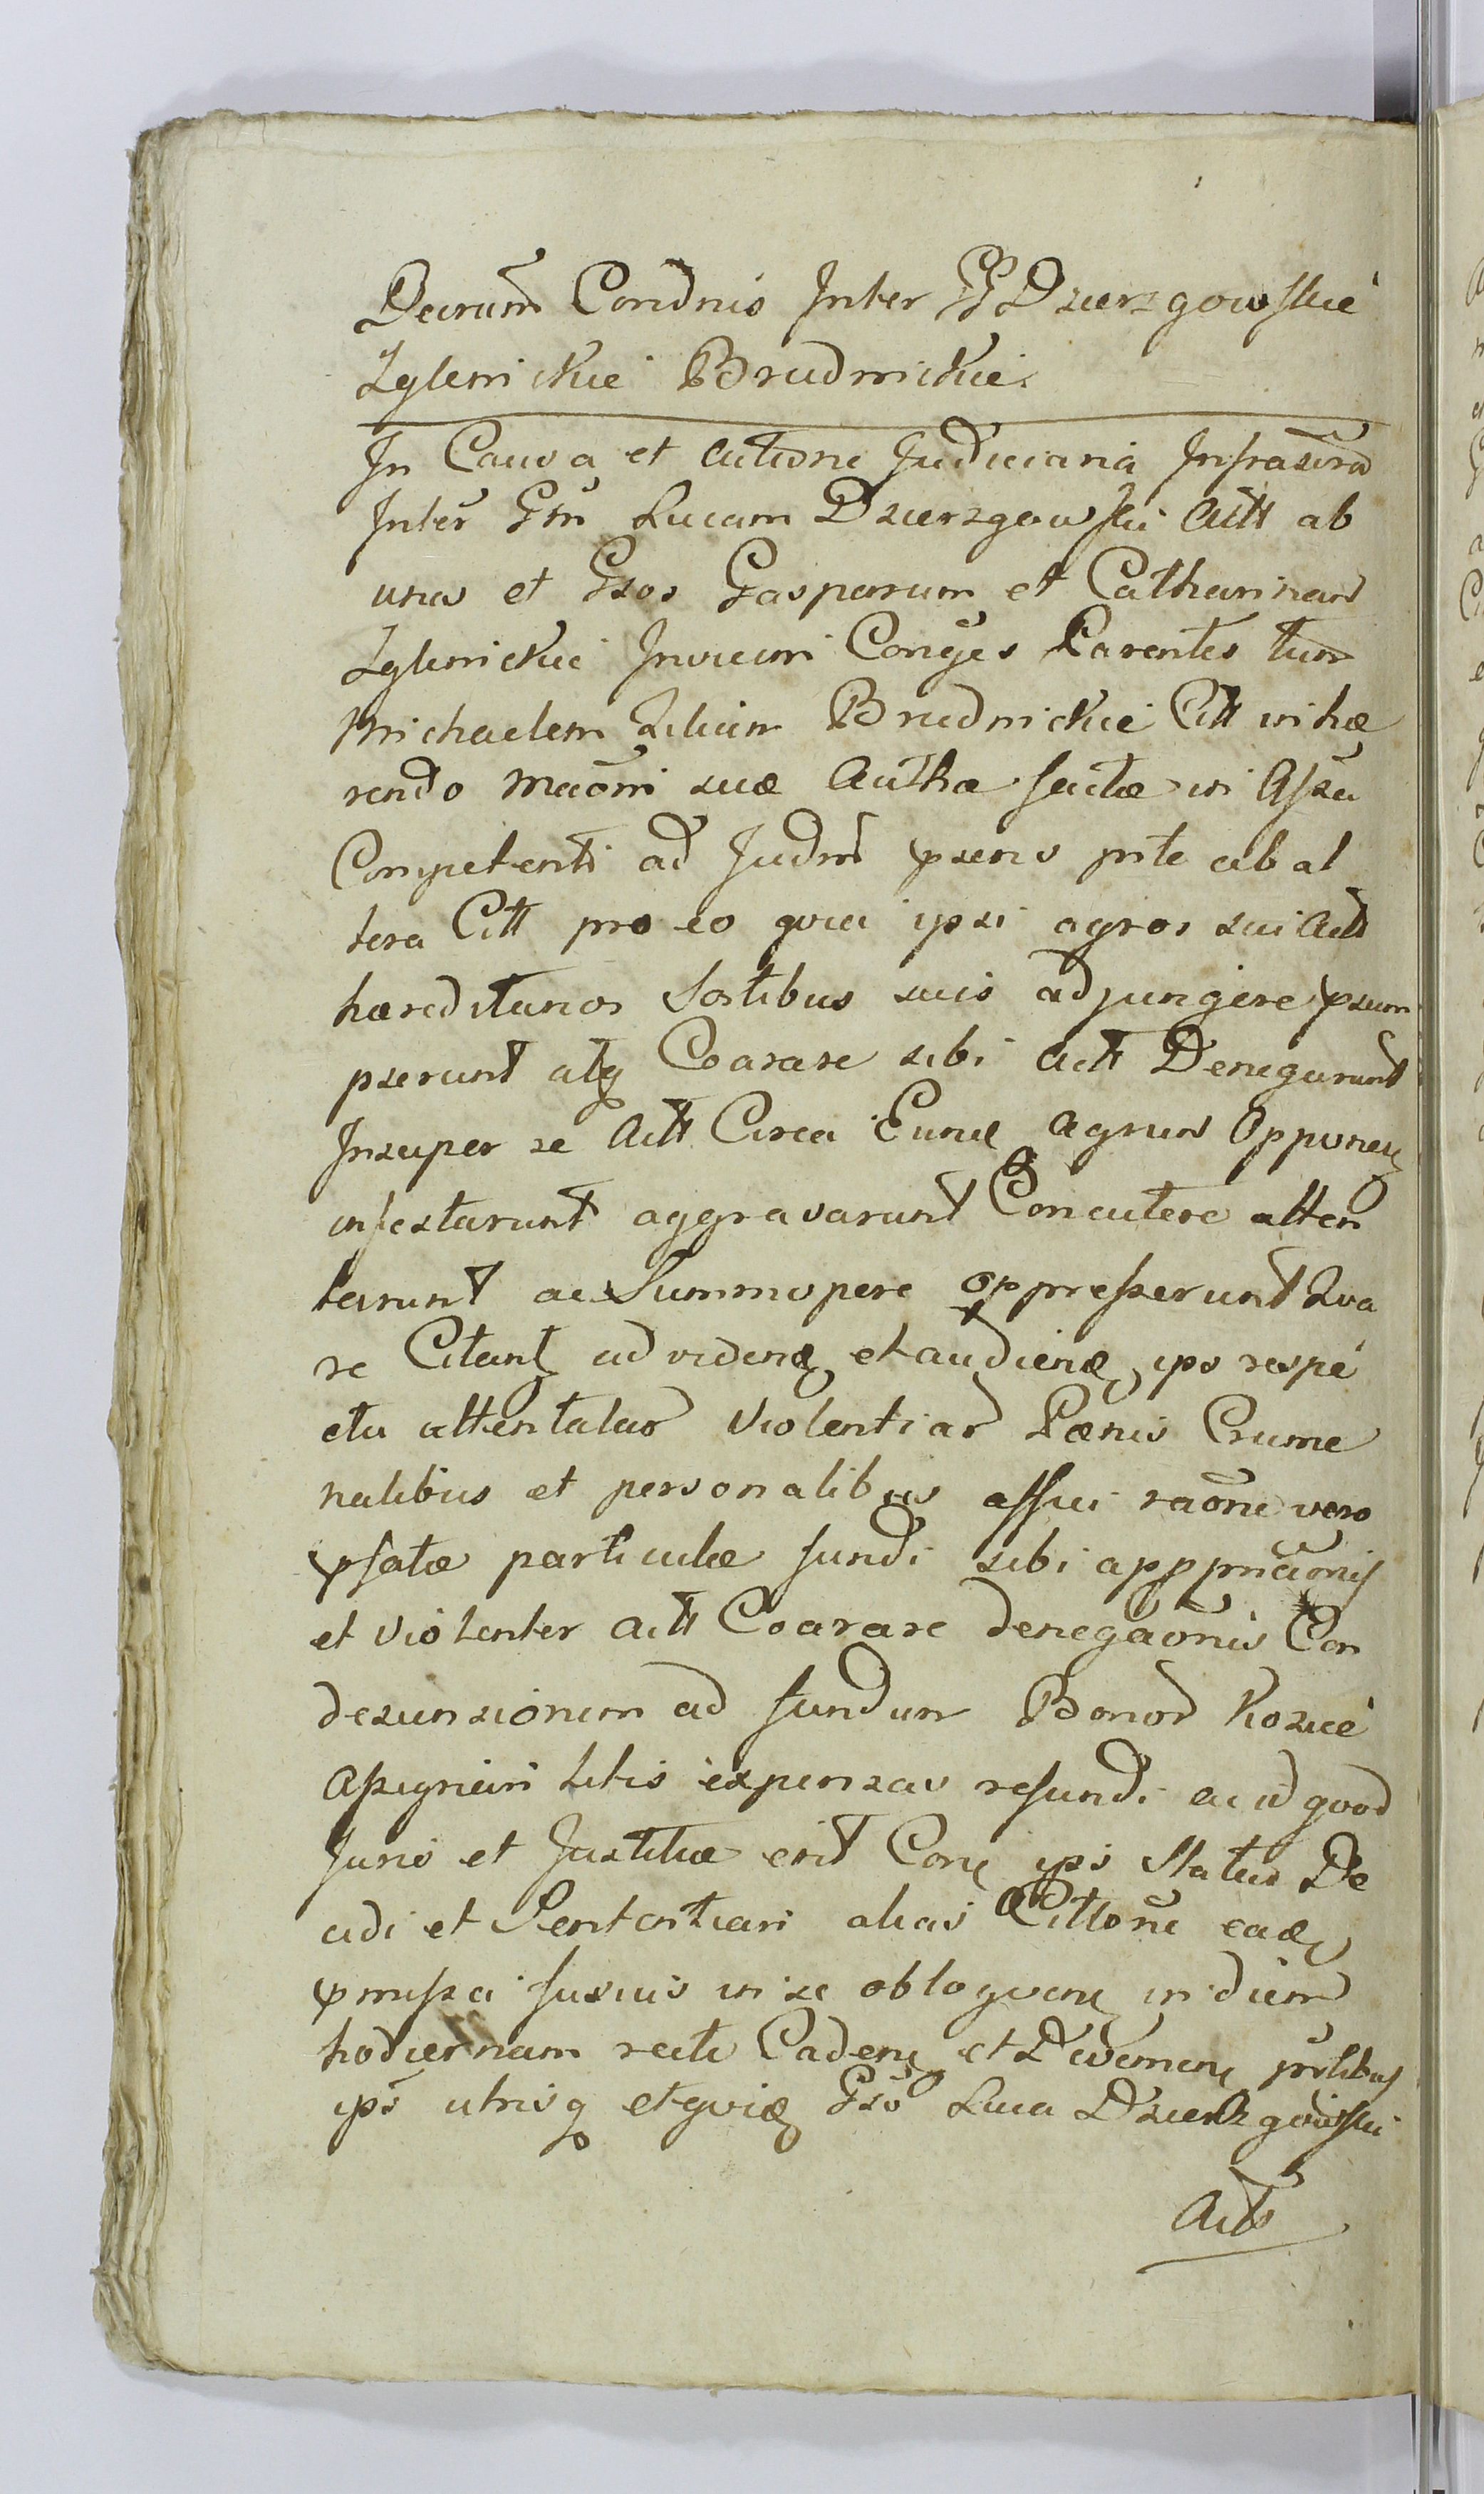 Decrum Condnis Inter GG Dzierzgowskie
Zglenickie Brudnickie
In Causa et actione Judiciaria Infrascra
Inter Gsm Lucam Dzierzgowski Actt ab
una et Gsos Gasparum et Catharinam
Zglenickie Invicem Conges Parentes tum
Michaelem Filium Brudnickie Citt inhæ
rendo maoni suæ Authæ factæ in Assu
Competenti ad Judm psens pte ab al
tera Citt pro eo quia ipsi agros sui Actt
hæreditarios Sortibus suis adjungere psum
pserunt atq Coarare sibi Actt Denegarunt
Insuper se Actt Circa Eund agrum Opponen
infestarunt aggravarunt Concutere atten
tarunt ac Summopere oppresserunt Qua
re Citant ad vidend et audiend ips respe
ctu attentatar Violentiar Pænis Crume
nalibus et personalibus affici raone vero
psatæ particulæ fundi sibi apppriaonis
et violenter actt Coarare denegaonis Con
descensionem ad fundum Bonor Kosicé
Assignari litis expensas refundi ac id quod
Juris et Justitiæ erit Conq ips Status De
cidi et Sententiari alias Cittone ead
pmissa fusius in se obloquen in diem
hodiernam recte Caden et Devenien prtibus
ips utrisq et quid Gso Luca Dzierzgowski
Actt